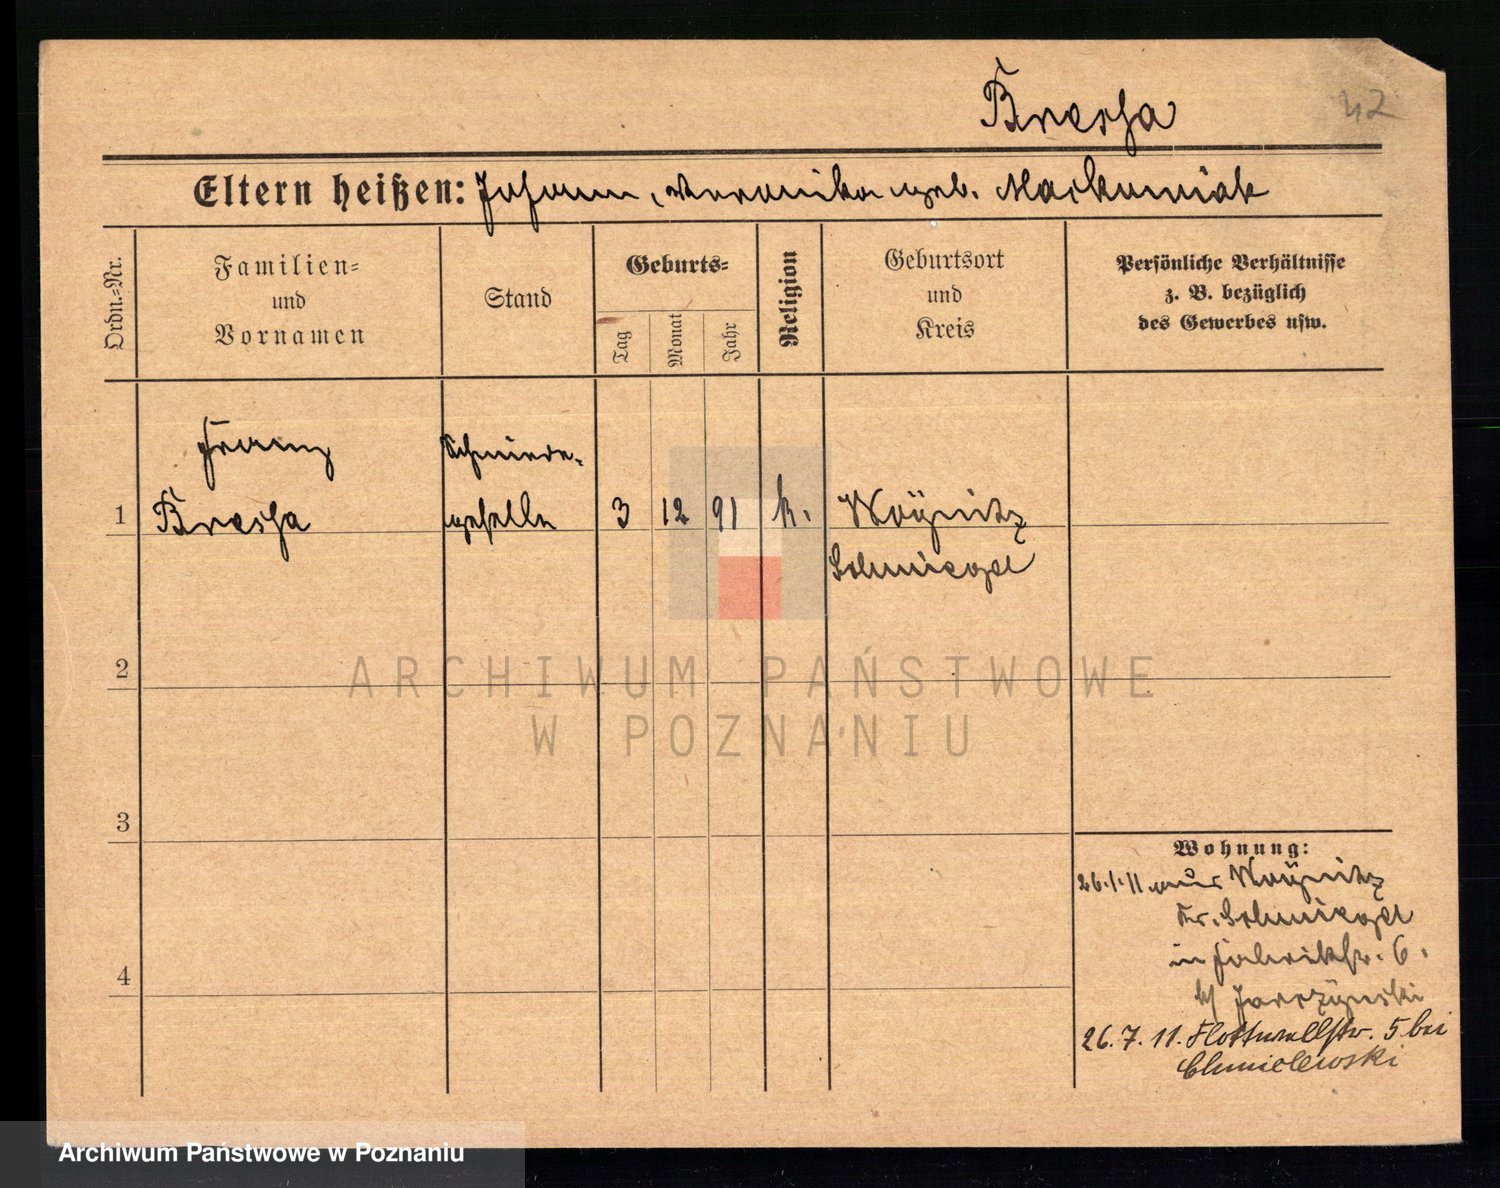 Brescha
42
Eltern heißen: Johann, Veronika geb. Mackowiak
Ordn.-Nr.
Familien-
und
Vornamen
Stand
Geburts-
Tag
Monat
Jahr
Religion
Geburtsort
und
Kreis
Persönliche Verhältnisse
z. B. bezüglich
des Gewerbes usw.
Franz
Schmiede-
1 Brescha geselle 3 12 91 k. Woÿnitz
Schmiegel
2
ARCHIWUM PAŃSTWOWE
W POZNANIU
3
Wohnung:
26.1.11 aus Woÿnitz
Kr. Schmiegel
in Fabrikstr. 6.
b/ Jarczÿnski
4
26.7.11. Flottwellstr. 5 bei
Chmielewski
Archiwum Państwowe w Poznaniu